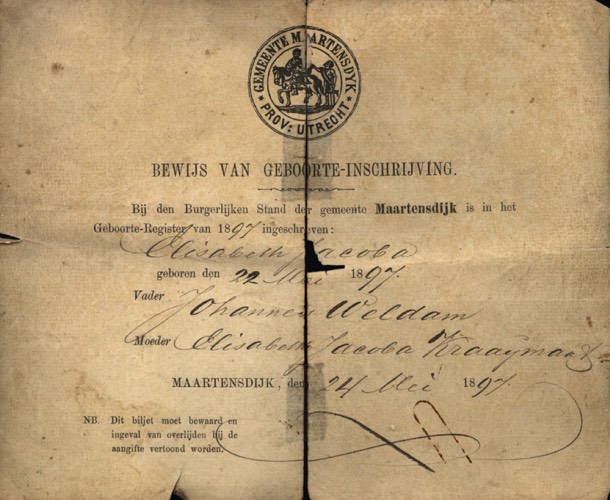 GEMEENTE MAARTENSDYK
* PROV: UTRECHT *
BEWIJS VAN GEBOORTE-INSCHRIJVING.
Bij den Burgerlijken Stand der gemeente Maartensdijk is in het
Geboorte-Register van 1897 ingeschreven:
Elisabeth Jacoba
geboren den 22 Mei 1897.
Vader
Johannes Weldam
Moeder Elisabeth Jacoba
MAARTENSDIJK, den 24 Mei 1897.
NB. Dit biljet moet bewaard en
ingeval van overlijden bij de
aangifte vertoond worden.